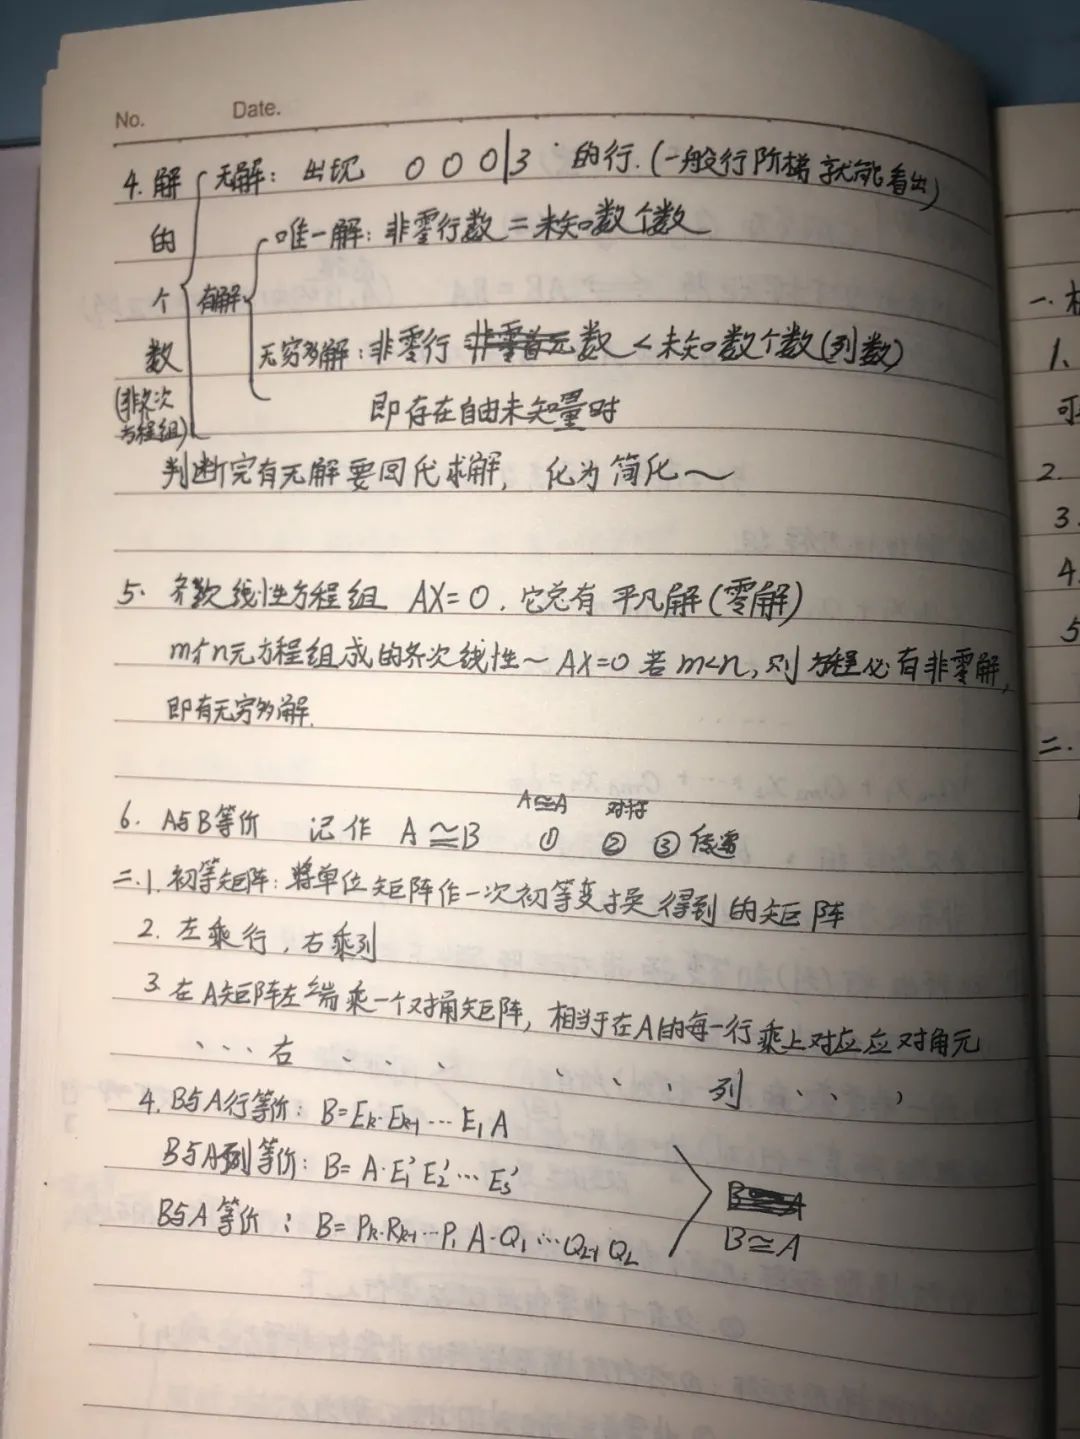 No. Date.
4. 解的个数(非齐次方程组)
无解: 出现 0 0 0|3 的行.(一般行阶梯就能看出)
有解
唯一解: 非零行数 = 未知数个数
无穷多解: 非零行 数 < 未知数个数(列数)
即存在自由未知量时
判断完有无解要回代求解, 化为简化~
5. 齐次线性方程组 AX=0. 它总有平凡解(零解)
m个n元方程组成的齐次线性~ AX=0 若 m<n, 则方程必有非零解,
即有无穷多解.
A≅A 对称
6. A与B等价 记作 A≅B ① ② ③传递
二.1. 初等矩阵: 将单位矩阵作一次初等变换得到的矩阵
2. 左乘行, 右乘列
3. 在A矩阵左端乘一个对角矩阵, 相当于在A的每一行乘上对应应对角元
、、、右 、、、 、、、列 、、、
4. B与A行等价: B=Ek·Ek-1 … E1 A
B与A列等价: B= A·E1' E2' … Es'
B与A等价: B= Pk·Rk-1 … P1 A·Q1 … QL-1 QL
B≅A
一.
1、
可
2.
3.
4.
5
二.